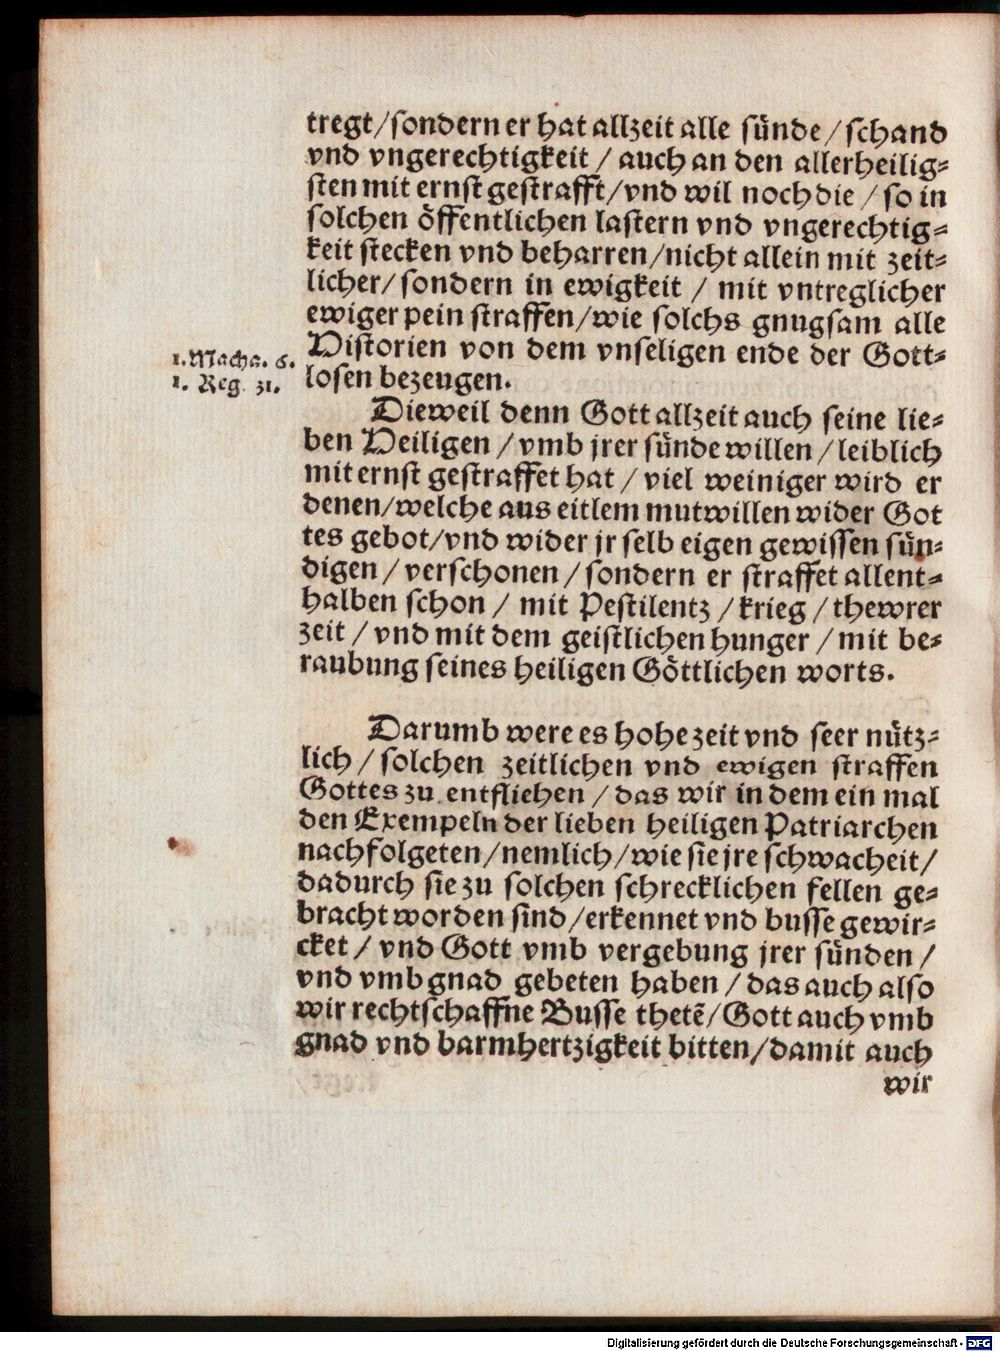 tregt/sondern er hat allzeit alle sünde/schand
vnd vngerechtigkeit / auch an den allerheilig-
sten mit ernst gestrafft/vnd wil noch die / so in
solchen öffentlichen lastern vnd vngerechtig-
keit stecken vnd beharren/nicht allein mit zeit-
licher/sondern in ewigkeit / mit vntreglicher
ewiger pein straffen/wie solchs gnugsam alle
Historien von dem vnseligen ende der Gott-
losen bezeugen.
1. Macha. 6.
1. Reg. 31.
Dieweil denn Gott allzeit auch seine lie-
ben Heiligen / vmb jrer sünde willen / leiblich
mit ernst gestraffet hat / viel weiniger wird er
denen/welche aus eitlem mutwillen wider Got
tes gebot/vnd wider jr selb eigen gewissen sün-
digen / verschonen / sondern er straffet allent-
halben schon / mit Pestilentz / krieg / thewrer
zeit / vnd mit dem geistlichen hunger / mit be-
raubung seines heiligen Göttlichen worts.
Darumb were es hohe zeit vnd seer nütz-
lich / solchen zeitlichen vnd ewigen straffen
Gottes zu entfliehen / das wir in dem ein mal
den Exempeln der lieben heiligen Patriarchen
nachfolgeten/nemlich/wie sie jre schwacheit/
dadurch sie zu solchen schrecklichen fellen ge-
bracht worden sind/erkennet vnd busse gewir-
cket / vnd Gott vmb vergebung jrer sünden /
vnd vmb gnad gebeten haben / das auch also
wir rechtschaffne Busse thetẽ/Gott auch vmb
gnad vnd barmhertzigkeit bitten/damit auch
wir
Digitalisierung gefördert durch die Deutsche Forschungsgemeinschaft - DFG